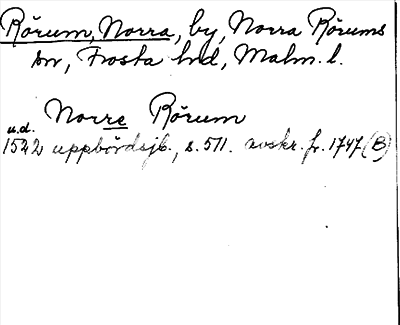 Rörum, Norra, by, Norra Rörums
sn, Frosta hd, Malm. l.
Norre Rörum
u.d.
1542 uppbördsjb., s. 511. avskr. fr. 1747 (B)